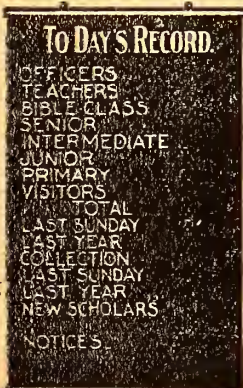 TO DAY'S RECORD.
OFFICERS
TEACHERS
BIBLE CLASS
SENIOR
INTERMEDIATE
JUNIOR
PRIMARY
VISITORS
TOTAL
LAST SUNDAY
LAST YEAR
COLLECTION
LAST SUNDAY
LAST YEAR
NEW SCHOLARS
NOTICES